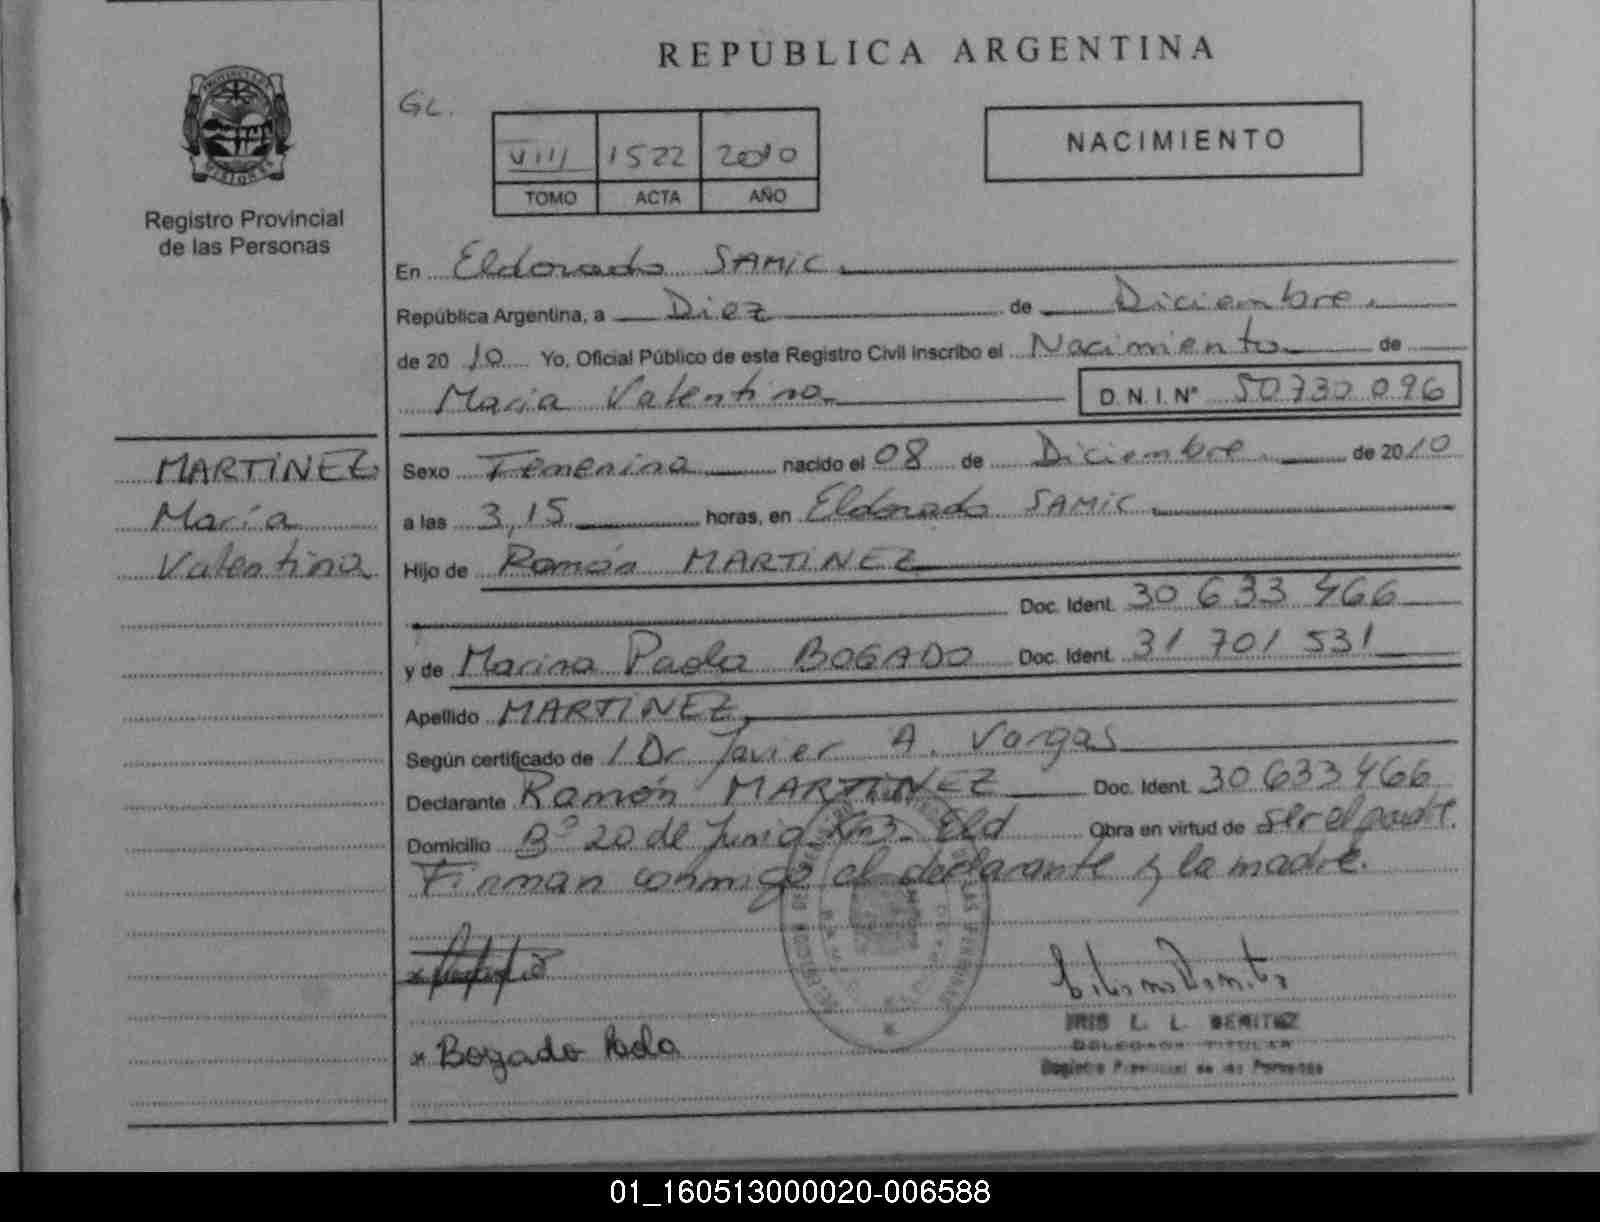 REPUBLICA ARGENTINA
GL.
VIII 1522 2010
TOMO ACTA AÑO
NACIMIENTO
Registro Provincial
de las Personas
En Eldorado SAMIC
República Argentina, a Diez de Diciembre
de 20 10 Yo, Oficial Público de este Registro Civil inscribo el Nacimiento de
Maria Valentina D. N. I. N° 50730096
MARTINEZ
María
Valentina
Sexo Femenino nacido el 08 de Diciembre de 2010
a las 3,15 horas, en Eldorado SAMIC
Hijo de Ramón MARTINEZ
Doc. Ident. 30 633 466
y de Marina Paola BOGADO Doc. Ident. 31 701 531
Apellido MARTINEZ
Según certificado de / Dr Javier A. Vargas
Declarante Ramón MARTINEZ Doc. Ident. 30633466
Domicilio B° 20 de Junio Km3 - Eld Obra en virtud de ser el padre.
Firman conmigo el declarante y la madre.
x Bogado Paola
IRIS L. L. BENITEZ
DELEGADA TITULAR
Registro Provincial de las Personas
01_160513000020-006588